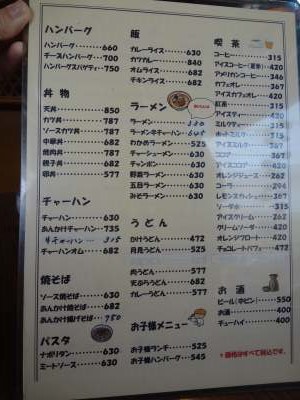 ハンバーグ
ハンバーグ………660
チーズハンバーグ……700
ハンバーグスパゲティ……750
丼物
天丼………850
カツ丼………787
ソースカツ丼………830
中華丼………682
焼肉丼………787
親子丼………682
卵丼………577
チャーハン
チャーハン………630
あんかけチャーハン……735
半チャーハン… 315
チャーハンオム………682
焼そば
ソース焼そば………630
あんかけ焼そば………682
あんかけ揚げそば… 750
パスタ
ナポリタン………630
ミートソース………630
飯
カレーライス………630
カツカレー………840
オムライス………682
チキンライス………682
ラーメン
ラーメン
ラーメン半チャーハン
わかめラーメン………525
チャーシューメン………630
チャンポン………630
野菜ラーメン………630
五目ラーメン………630
みそラーメン………630
うどん
かけうどん………472
月見うどん………525
肉うどん………577
天ぷらうどん………682
カレーうどん………577
お子様メニュー
お子様ランチ………525
お子様ハンバーグ……545
喫茶
コーヒー………315
アイスコーヒー(夏季)…420
アメリカンコーヒー……346
カフェオレ………367
アイスカフェオレ………420
紅茶………315
アイスティー………420
ミルクティー………315
ホットミルク………315
アイスミルク………367
ココア………367
アイスココア………420
オレンジジュース………262
コーラ………294
レモンスカッシュ………367
ソーダ水………315
アイスクリーム………262
クリームソーダ………420
オレンジフロート………420
チョコレートパフェ……472
お酒
ビール(中ビン)………550
お酒………400
チューハイ………400
*価格はすべて税込です。